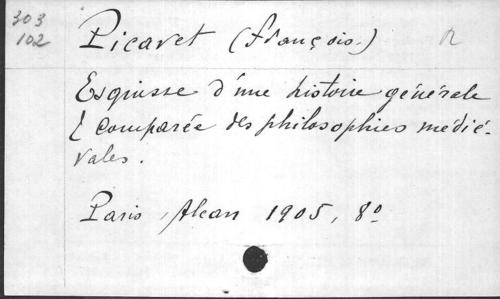 303
102
Picavet (François.) R
Esquisse d'une histoire générale
& comparée des philosophies médié-
vales.
Paris, Alcan 1905, 8º